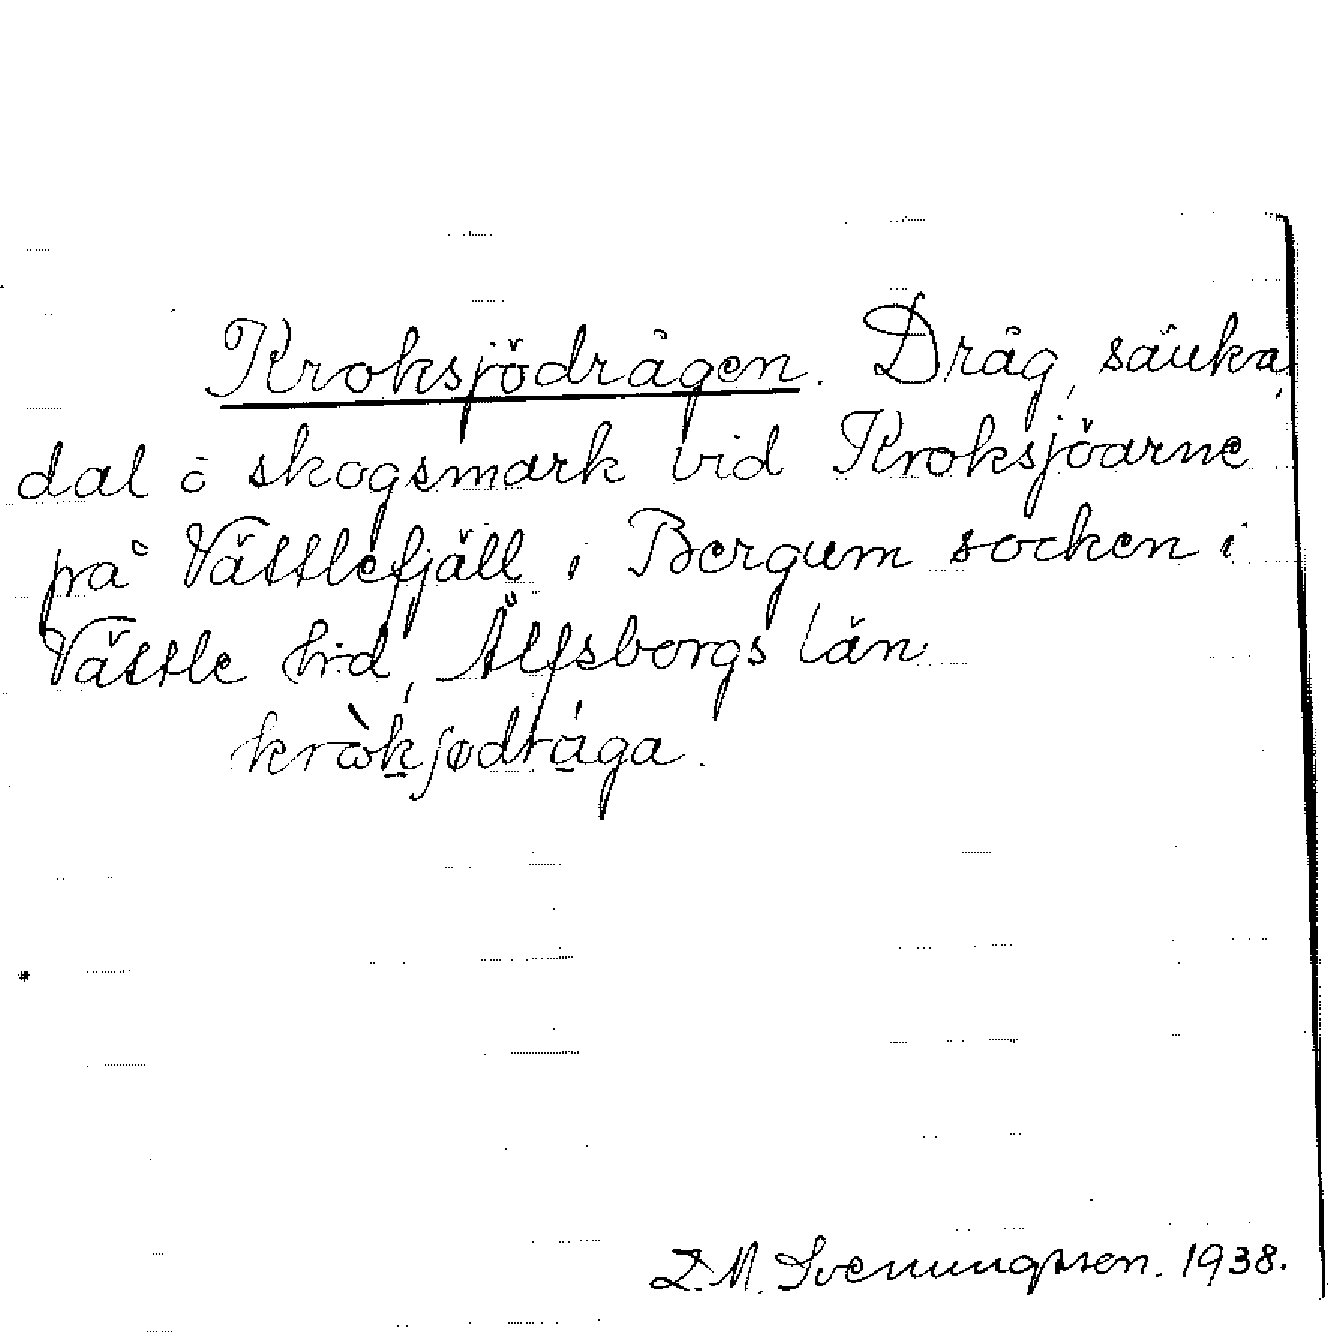 Kroksjödrågen. Dråg, sänka,
dal å skogsmark vid Kroksjöarne
på Vättlefjäll i Bergum socken i
Vättle hrd, Älfsborgs län
kròkjødråga.
L. M. Svenungsson. 1938.